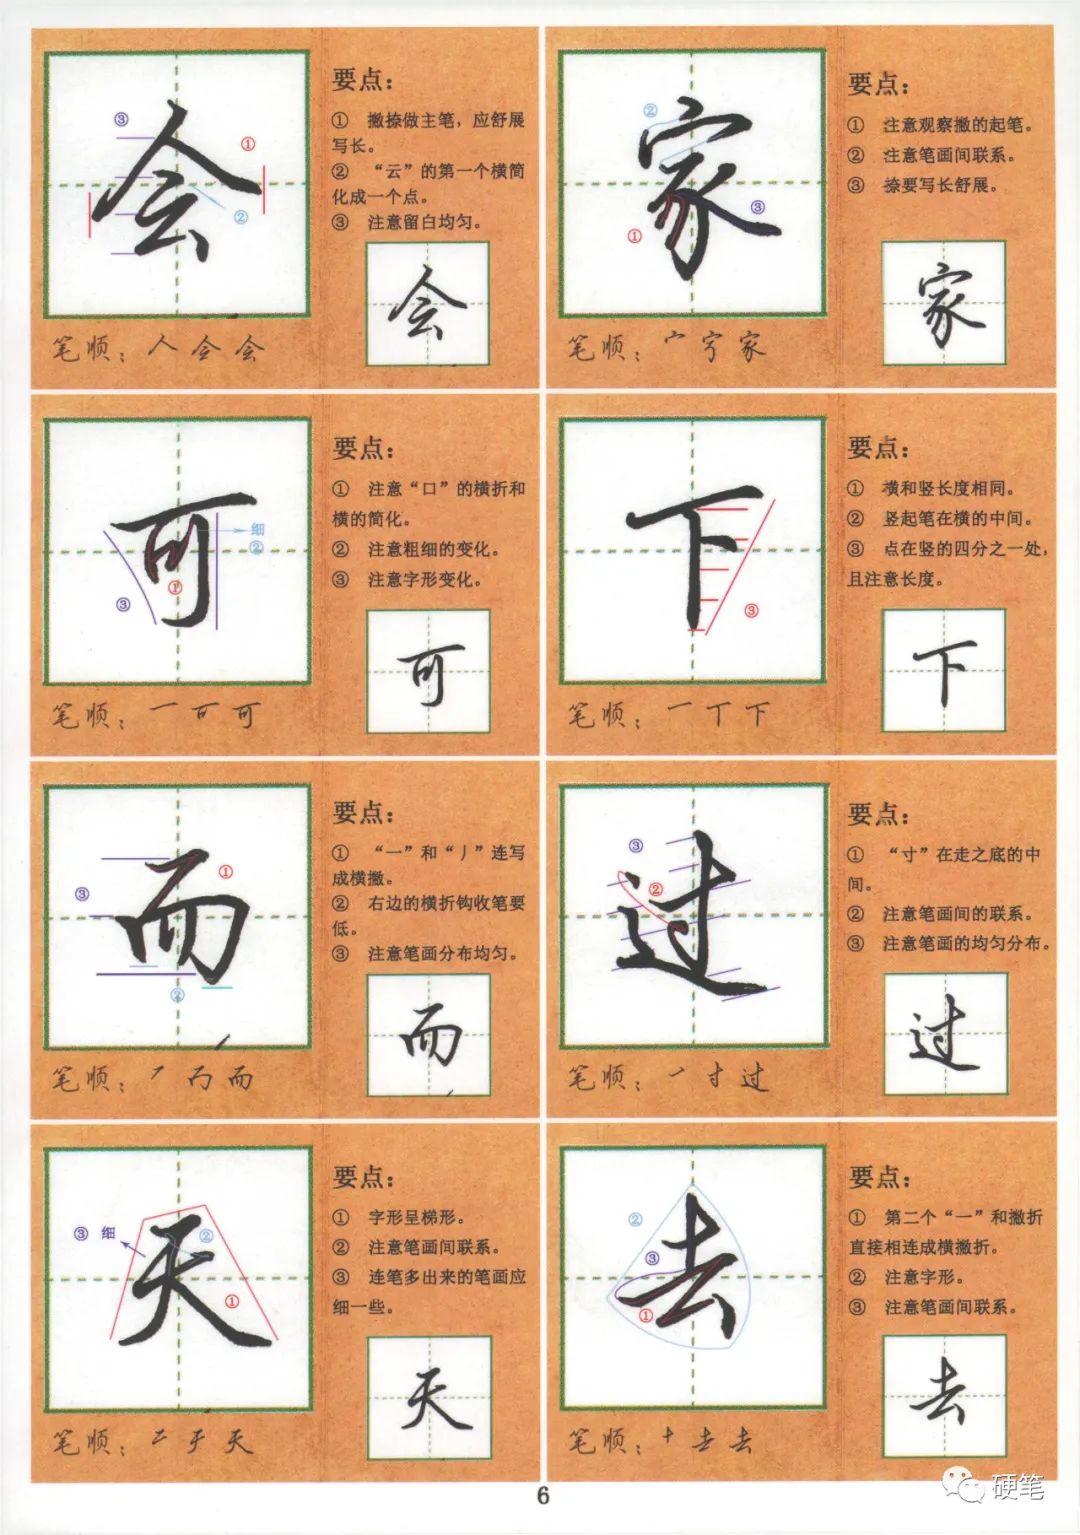 会
③
①
②
要点：
① 撇捺做主笔，应舒展
写长。
② “云”的第一个横简
化成一个点。
③ 注意留白均匀。
会
笔顺：人 会 会
家
②
③
①
要点：
① 注意观察撇的起笔。
② 注意笔画间联系。
③ 捺要写长舒展。
家
笔顺：宀 家
可
细
②
①
③
要点：
① 注意“口”的横折和
横的简化。
② 注意粗细的变化。
③ 注意字形变化。
可
笔顺：一 可
下
③
要点：
① 横和竖长度相同。
② 竖起笔在横的中间。
③ 点在竖的四分之一处，
且注意长度。
下
笔顺：一 丅 下
而
①
③
②
要点：
① “一”和“丿”连写
成横撇。
② 右边的横折钩收笔要
低。
③ 注意笔画分布均匀。
而
笔顺：而
过
③
②
要点：
① “寸”在走之底的中
间。
② 注意笔画间的联系。
③ 注意笔画的均匀分布。
过
笔顺：一 寸 过
天
③ 细
②
①
要点：
① 字形呈梯形。
② 注意笔画间联系。
③ 连笔多出来的笔画应
细一些。
天
笔顺：二 天
去
②
③
①
要点：
① 第二个“一”和撇折
直接相连成横撇折。
② 注意字形。
③ 注意笔画间联系。
去
笔顺：十 去 去
6
硬笔